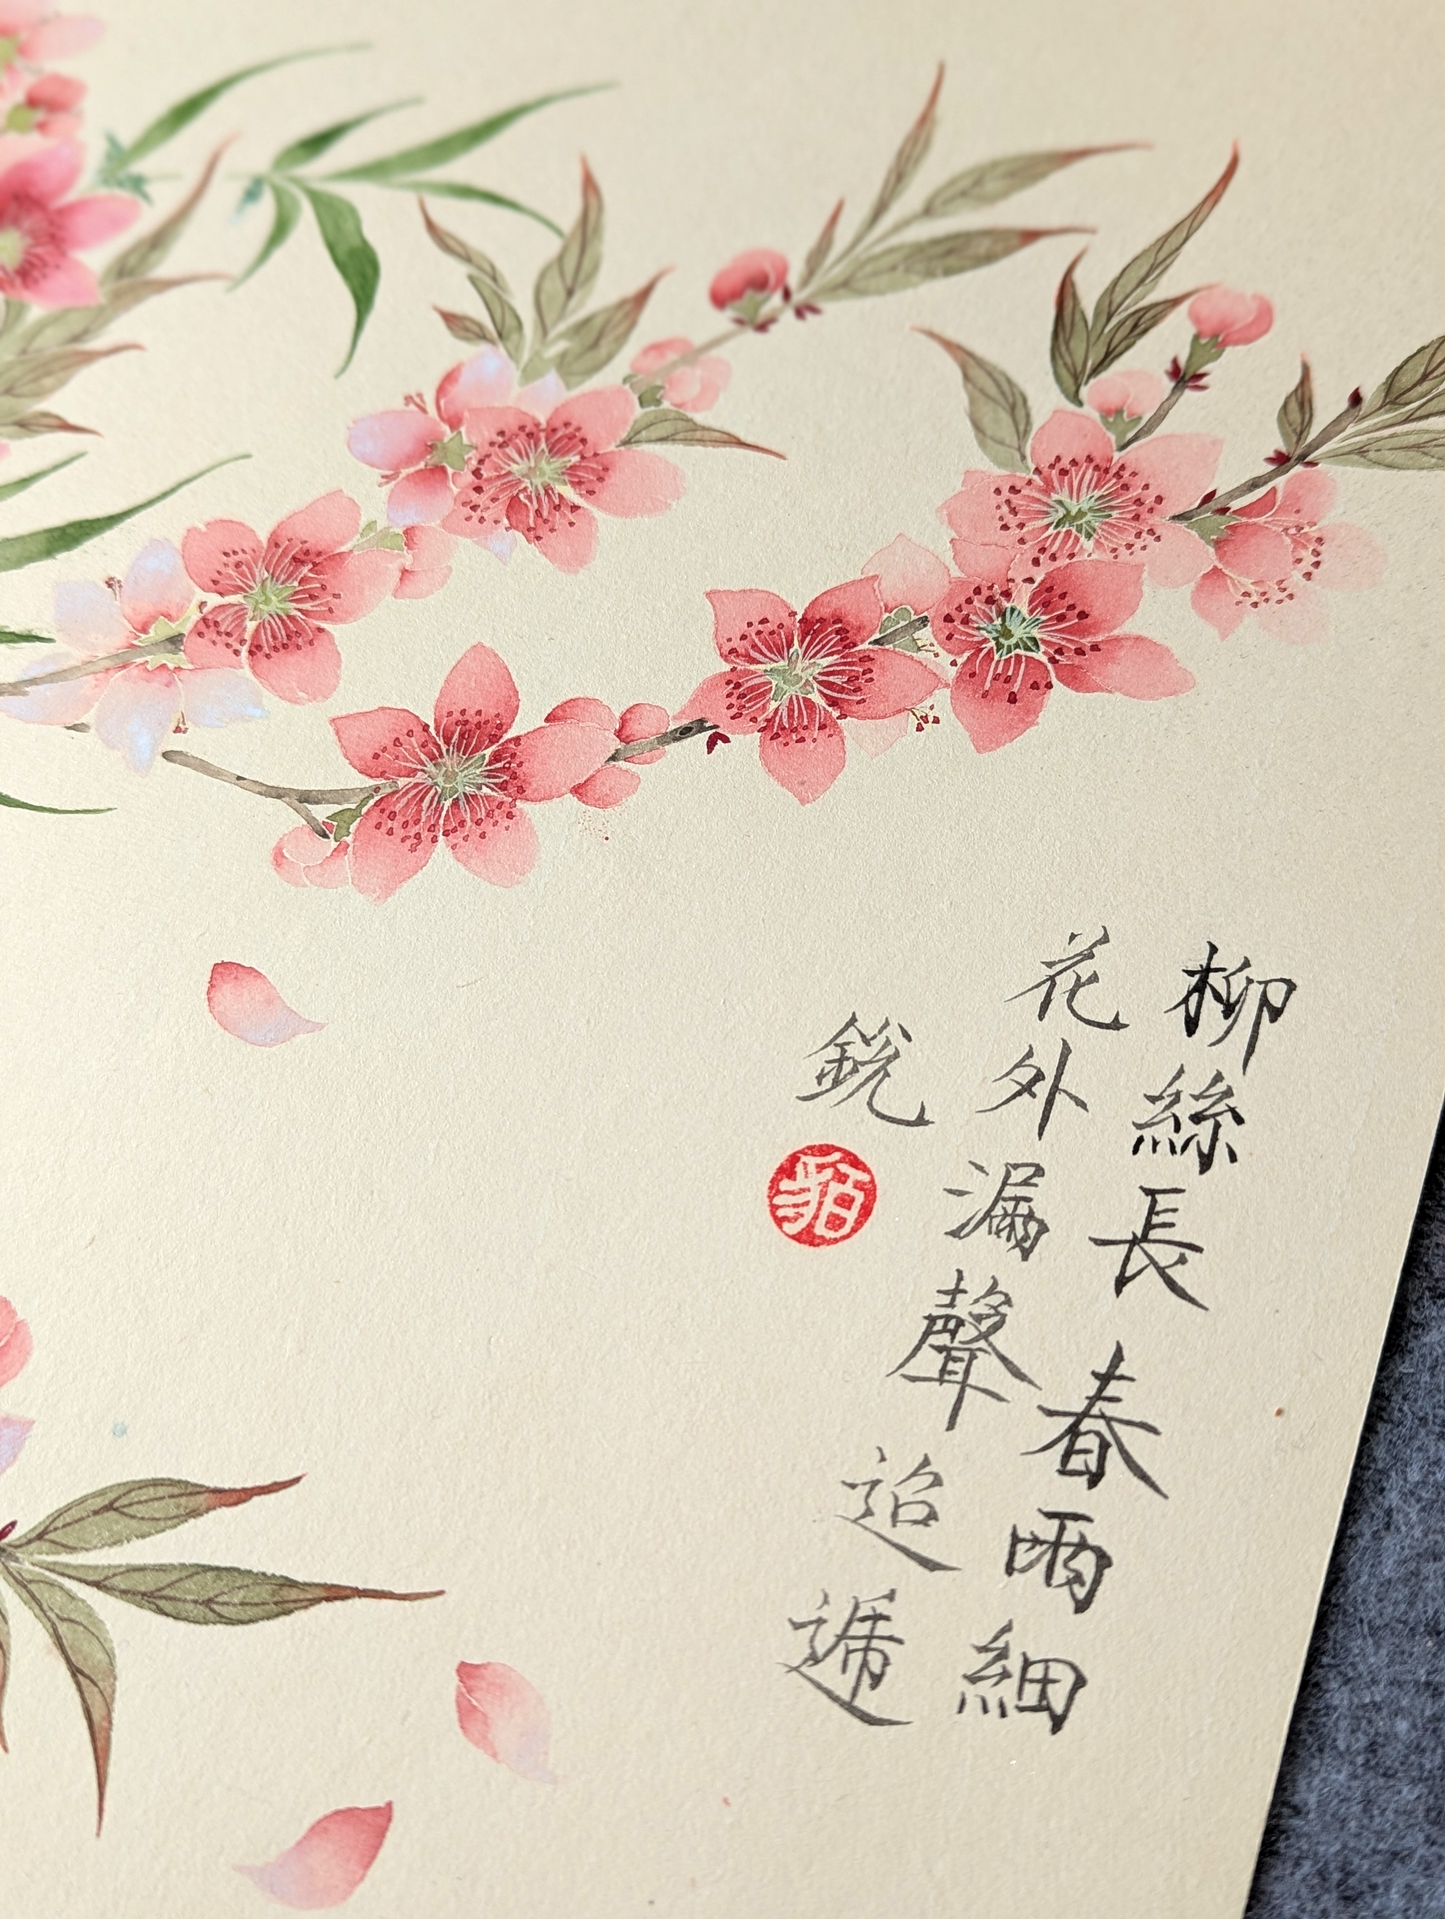 柳絲長春雨細
花外漏聲迢遞
銳
貊